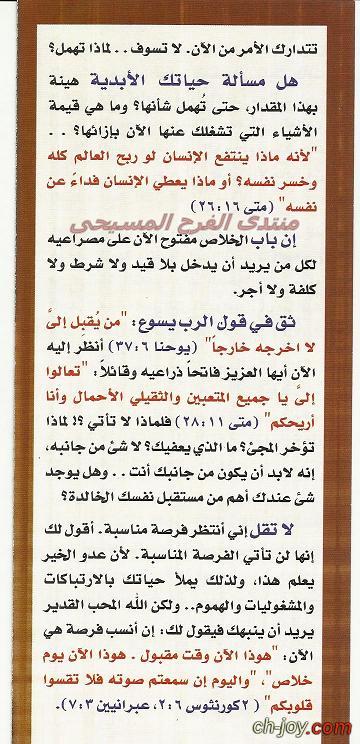 تتدارك الأمر من الآن. لا تسوف . . لماذا تهمل؟
هل مسألة حياتك الأبدية هينة
بهذا المقدار، حتى تُهمل شأنها؟ وما هي قيمة
الأشياء التي تشغلك عنها الآن بإزائها؟ . .
"لأنه ماذا ينتفع الإنسان لو ربح العالم كله
وخسر نفسه؟ أو ماذا يعطي الإنسان فداءً عن
نفسه" (متى ١٦:٢٦)
منتدى الفرح المسيحى
إن باب الخلاص مفتوح الآن على مصراعيه
لكل من يريد أن يدخل بلا قيد ولا شرط ولا
كلفة ولا أجر.
ثق في قول الرب يسوع: "من يُقبل إلىَّ
لا اخرجه خارجاً" (يوحنا ٦:٣٧) أنظر إليه
الآن أيها العزيز فاتحاً ذراعيه وقائلاً: "تعالوا
إلىَّ يا جميع المتعبين والثقيلي الأحمال وأنا
أريحكم" (متى ١١:٢٨) فلماذا لا تأتي ؟! لماذا
تؤخر المجئ؟ ما الذي يعفيك؟ لا شئ من جانبه،
إنه لابد أن يكون من جانبك أنت . . وهل يوجد
شئ عندك أهم من مستقبل نفسك الخالدة؟
لا تقل إني أنتظر فرصة مناسبة. أقول لك
إنها لن تأتي الفرصة المناسبة. لأن عدو الخير
يعلم هذا، ولذلك يملأ حياتك بالارتباكات
والمشغوليات والهموم.. ولكن الله المحب القدير
يريد أن ينبهك فيقول لك: إن أنسب فرصة هي
الآن: "هوذا الآن وقت مقبول . هوذا الآن يوم
خلاص"، "واليوم إن سمعتم صوته فلا تقسوا
قلوبكم" (٢كورنثوس ٦:٢، عبرانيين ٣:٧).
ch-joy.com